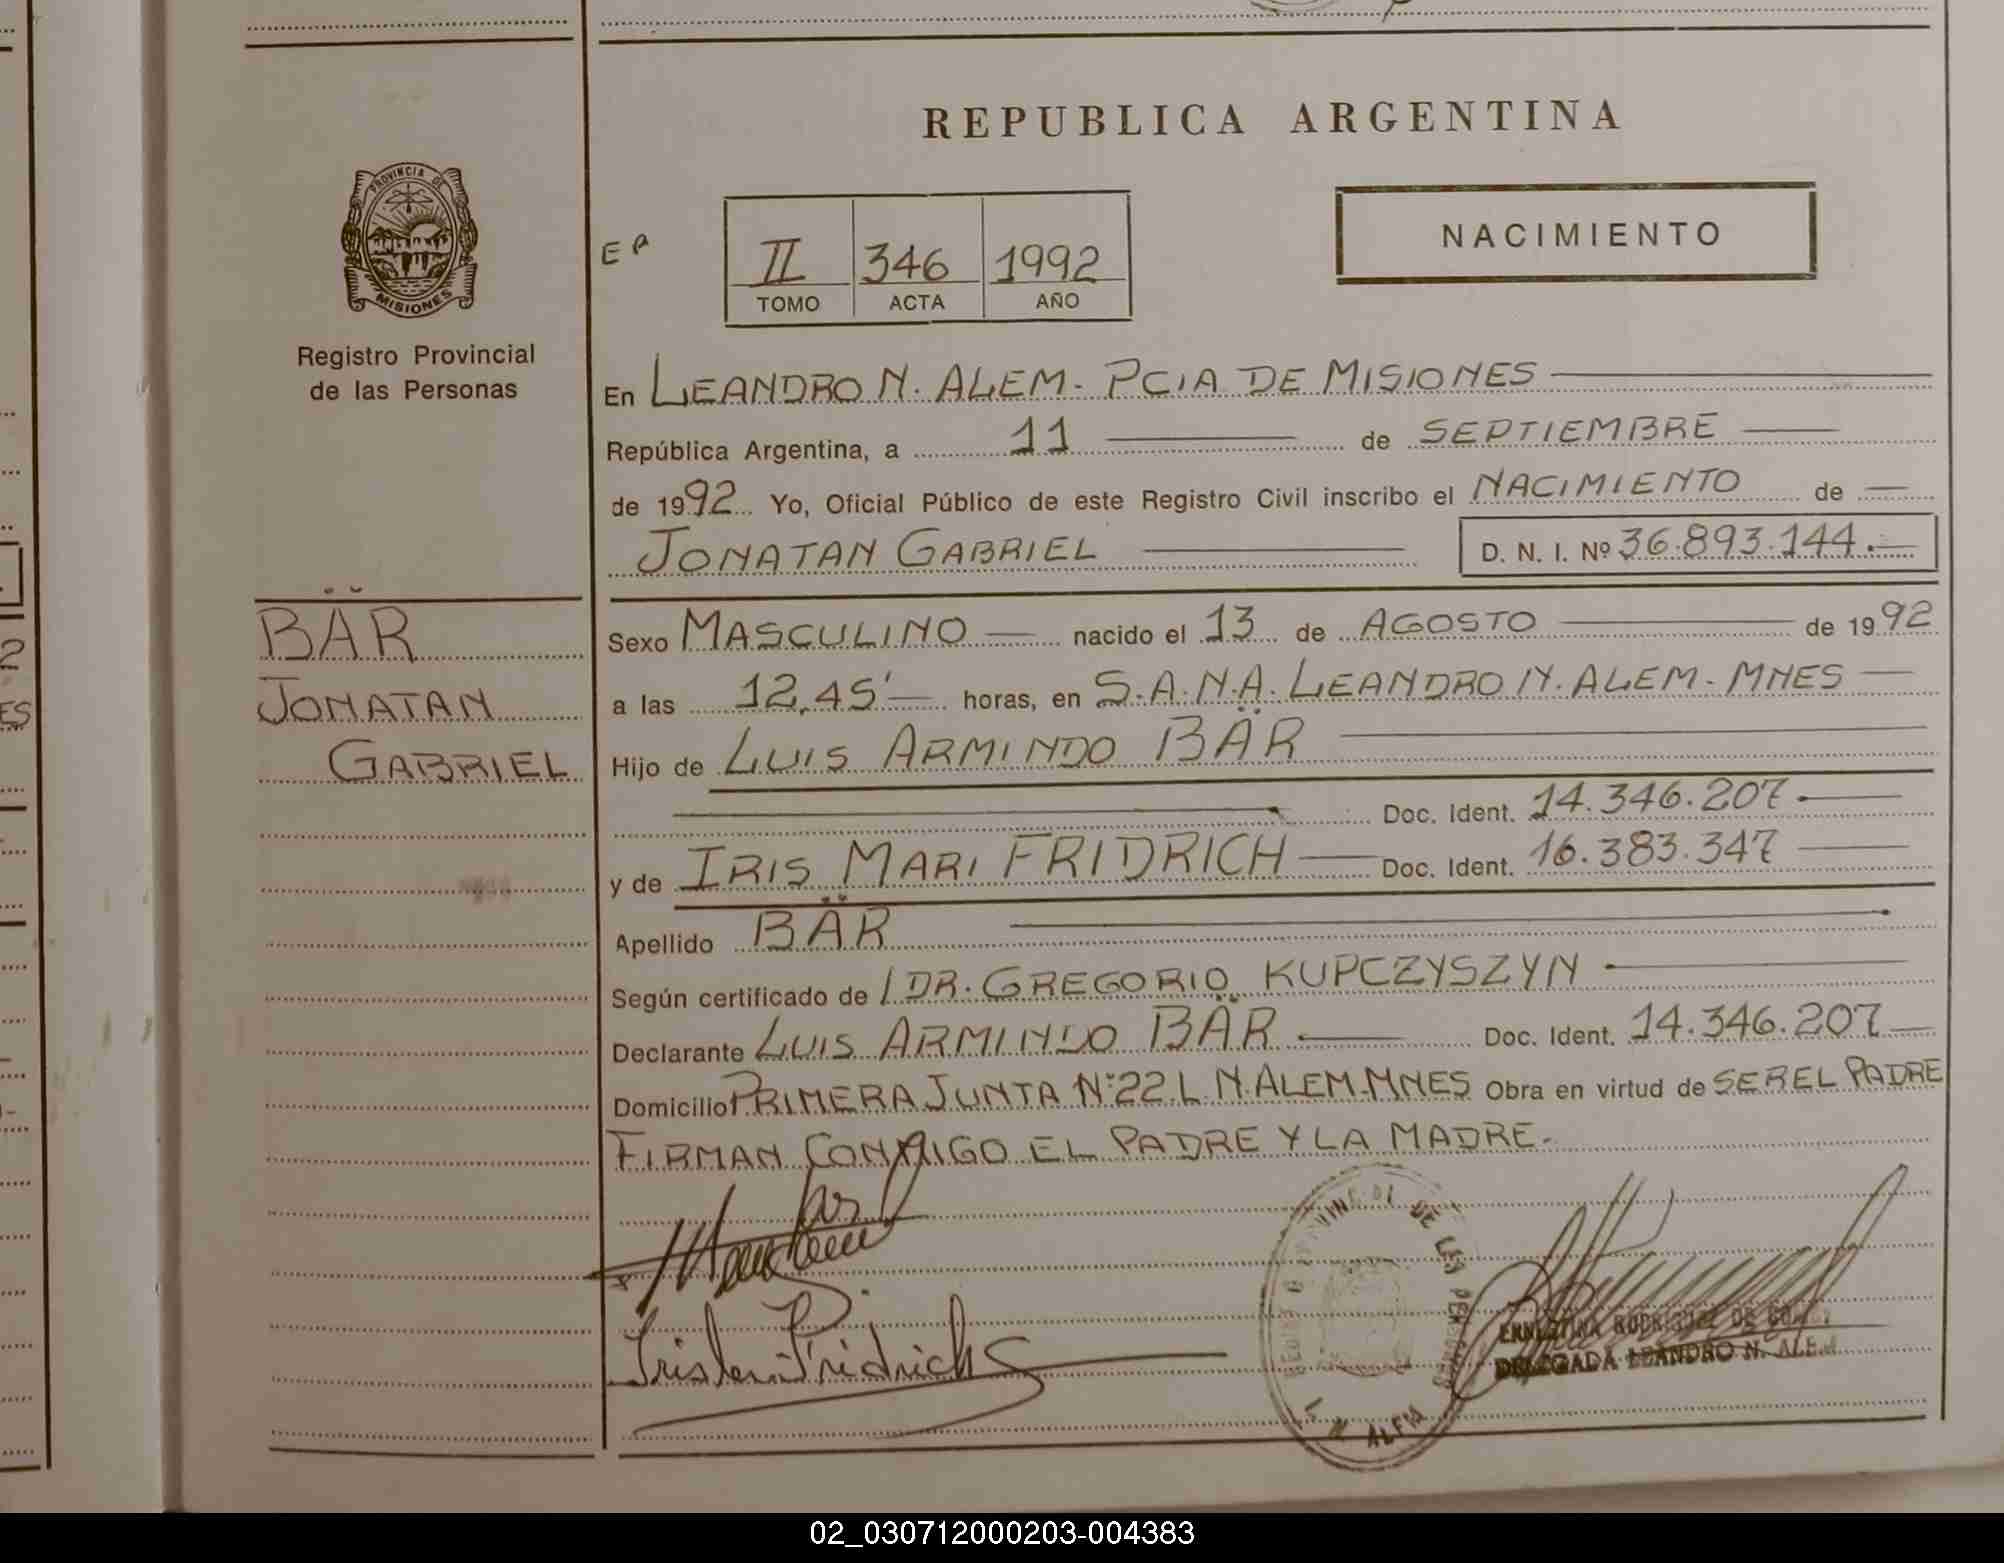 REPUBLICA ARGENTINA
PROVINCIA DE
MISIONES
Registro Provincial
de las Personas
E P
II 346 1992
TOMO ACTA AÑO
NACIMIENTO
En LEANDRO N. ALEM - PCIA DE MISIONES
República Argentina, a 11 de SEPTIEMBRE
de 1992 Yo, Oficial Público de este Registro Civil inscribo el NACIMIENTO de
JONATAN GABRIEL D. N. I. Nº 36.893.144.-
BÄR
JONATAN
GABRIEL
Sexo MASCULINO nacido el 13 de AGOSTO de 1992
a las 12,45' horas, en S.A.N.A. LEANDRO N. ALEM - MNES
Hijo de LUIS ARMINDO BÄR
Doc. Ident. 14.346.207
y de IRIS MARI FRIDRICH Doc. Ident. 16.383.347
Apellido BÄR
Según certificado de / DR. GREGORIO KUPCZYSZYN
Declarante LUIS ARMINDO BÄR Doc. Ident. 14.346.207
Domicilio PRIMERA JUNTA Nº 22 L. N. ALEM-MNES Obra en virtud de SER EL PADRE
FIRMAN CONMIGO EL PADRE Y LA MADRE.-
DE LAS PERSONAS
L. N. ALEM
ERNESTINA RODRIGUEZ DE
DELEGADA LEANDRO N. ALEM
02_030712000203-004383